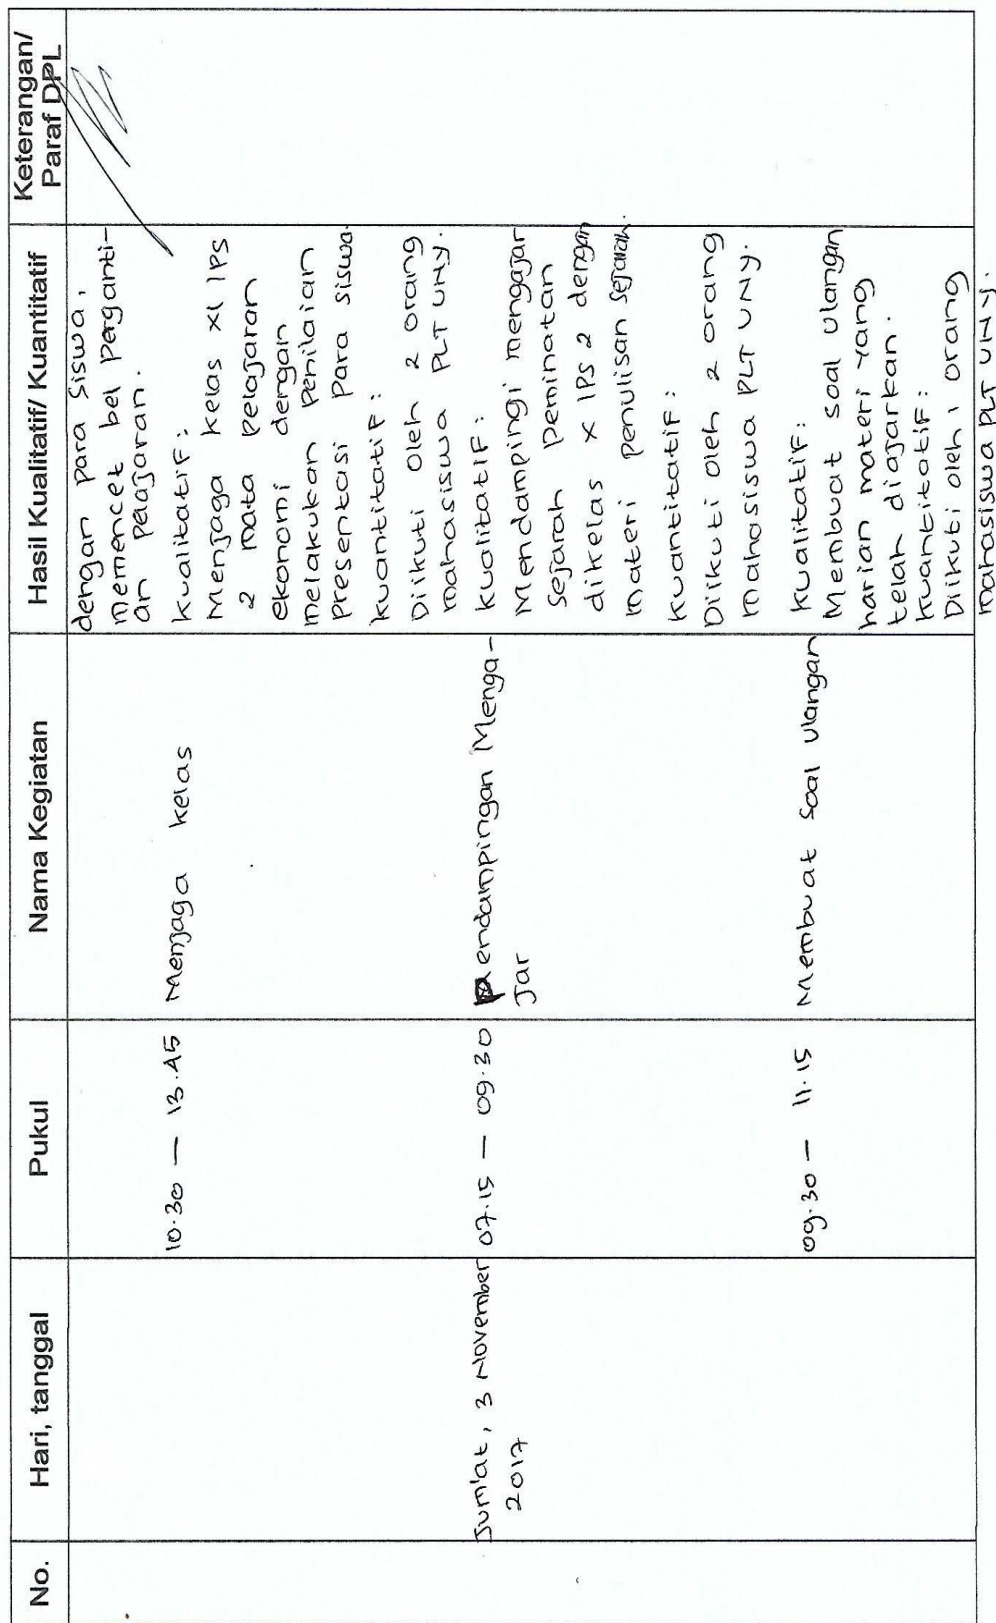 No. Hari, tanggal Pukul Nama Kegiatan Hasil Kualitatif/ Kuantitatif Keterangan/
Paraf DPL
dengan para siswa,
memencet bel perganti-
an pelajaran.
10.30 — 13.45 Menjaga kelas kualitatif:
Menjaga kelas XI IPS
2 mata pelajaran
ekonomi dengan
melakukan penilaian
presentasi para siswa
kuantitatif:
Diikuti oleh 2 orang
mahasiswa PLT UNY.
Jum'at, 3 November 07.15 — 09.30 Pendampingan Menga- kualitatif:
2017 Jar Mendampingi mengajar
sejarah peminatan
dikelas X IPS 2 dengan
materi penulisan sejarah.
kuantitatif:
Diikuti oleh 2 orang
mahasiswa PLT UNY.
09.30 — 11.15 Membuat soal ulangan kualitatif:
Membuat soal ulangan
harian materi yang
telah diajarkan.
kuantitatif:
Dikuti oleh 1 orang
mahasiswa PLT UNY.